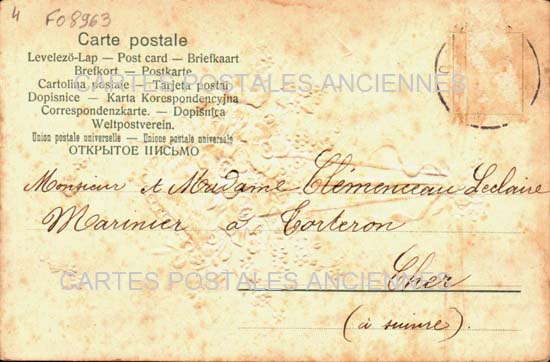 4
F08963
Carte postale
Levelező-Lap — Post card — Briefkaart
Brefkort — Postkarte
CARTES POSTALES ANCIENNES
Cartolina postale — Tarjeta postal
Dopisnice — Karta Korespondencyjna
Correspondenzkarte. — Dopisnica
Weltpostverein.
Union postale universelle — Unione postale universale
ОТКРЫТОЕ ПИСЬМО
Monsieur et Madame Clémenceau Leclaire
Marinier à Torteron
CARTES POSTALES ANCIENNES
Cher
(à suivre).